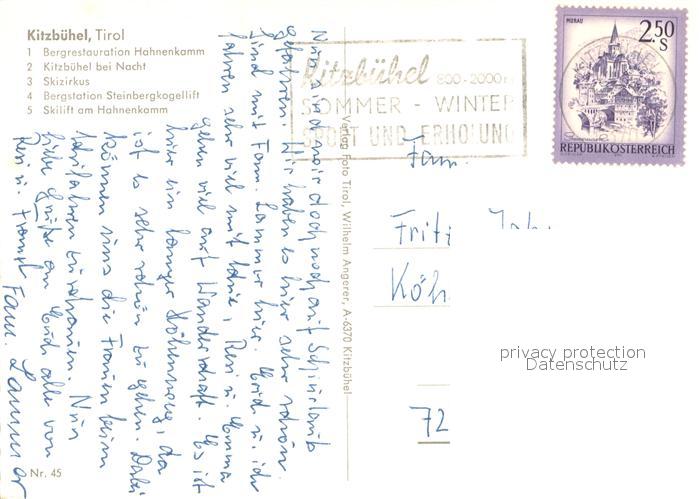 Kitzbühel, Tirol
1 Bergrestauration Hahnenkamm
2 Kitzbühel bei Nacht
3 Skizirkus
4 Bergstation Steinbergkogellift
5 Skilift am Hahnenkamm
Nun sind wir doch noch auf Schiurlaub
gefahren. Wir haben es hier sehr schön.
Sind mit Fam. Lammer hier. Erich u. ich
fahren sehr viel mit Schie, Resi u. Emma
gehen viel auf Wanderschaft. Es ist
hier ein langer Höhenweg, da
ist es sehr schön zu gehen. Dabei
können uns die Frauen beim
Schifahren zuschauen. Nun
liebe Grüße an Euch alle von
Resi u. Franz
Fam. Lammer
Nr. 45
Verlag Foto Tirol, Wilhelm Angerer, A-6370 Kitzbühel
Kitzbühel 800-2000 m
SOMMER - WINTER
SPORT UND ERHOLUNG
MURAU
2.50
S
REPUBLIK ÖSTERREICH
Fam.
Fritz
Köh
72
privacy protection
Datenschutz